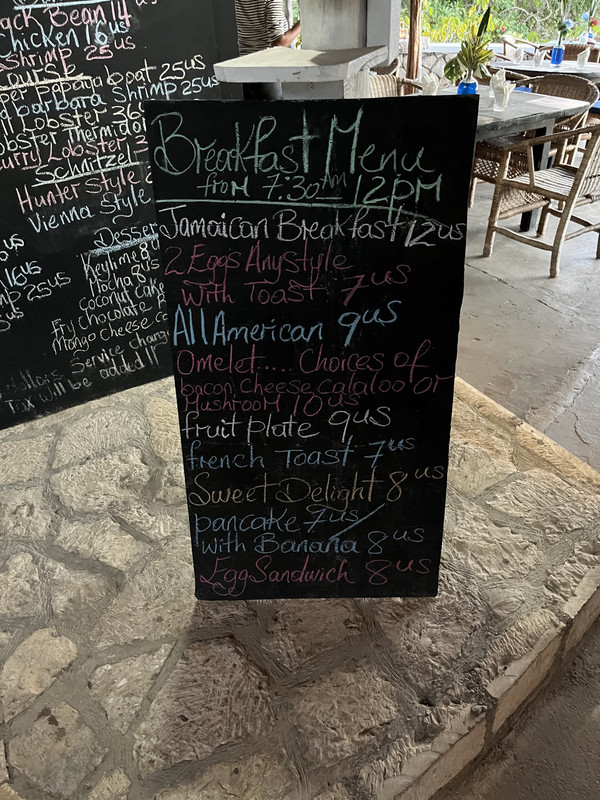 ack Bean 14
Chicken 16 us
Shrimp 25 us
Papaya boat 25 us
barbara Shrimp 25 us
Lobster
obster Thermido
urry Lobster
Schnitzel
Hunter Style
Vienna Style
16 us
25 us
Desser
Keylime 8
Mocha 8 us
Coconut Cake
Fry Chocolate
Mango Cheese ca
Service charg
Tax will be added !!
Breakfast Menu
from 7:30 AM 12 PM
Jamaican Breakfast 12 us
2 Eggs Anystyle
with Toast 7 us
All American 9 us
Omelet..... Choices of
bacon cheese calaloo or
Mushroom 10 us
fruit plate 9 us
french Toast 7 us
Sweet Delight 8 us
pancake 7 us/
with Banana 8 us
Egg Sandwich 8 us